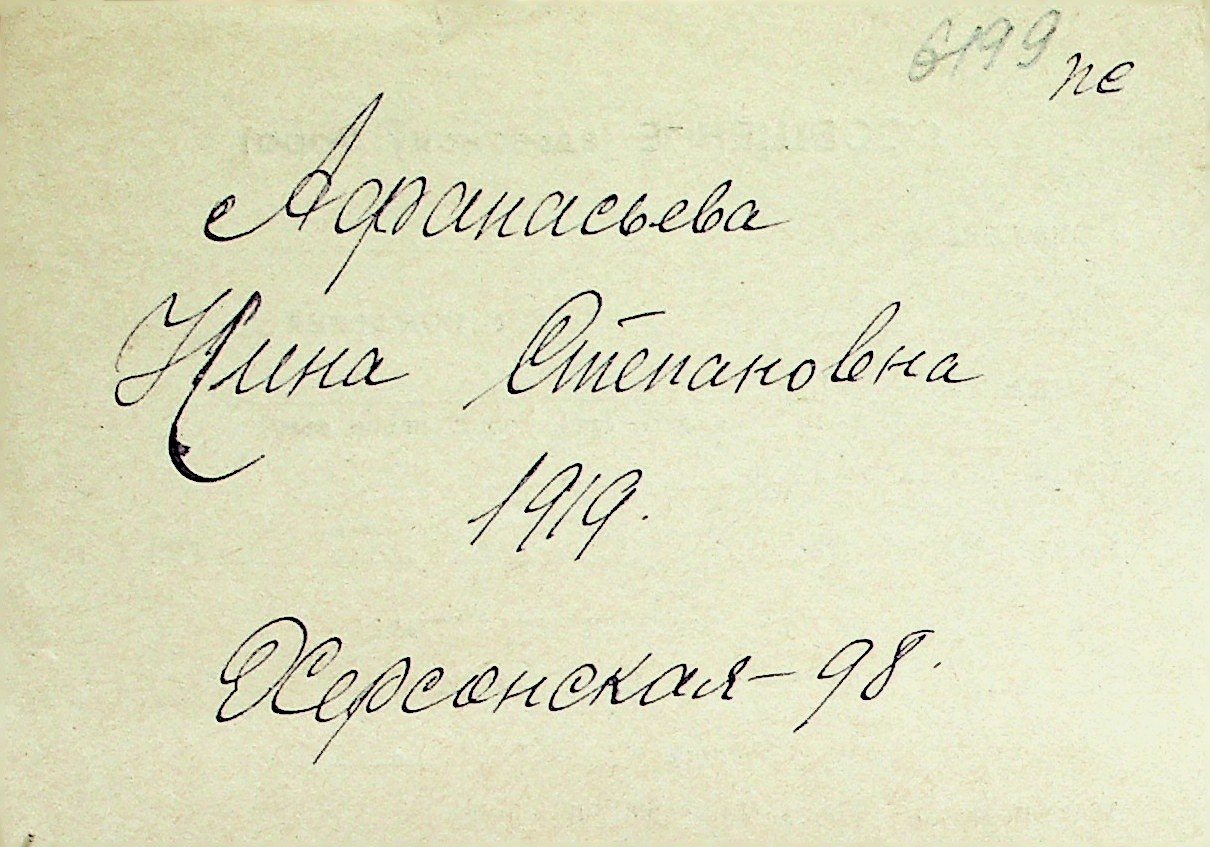 6199 пе
Афанасьева
Нина Степановна
1919.
Херсонская-98.